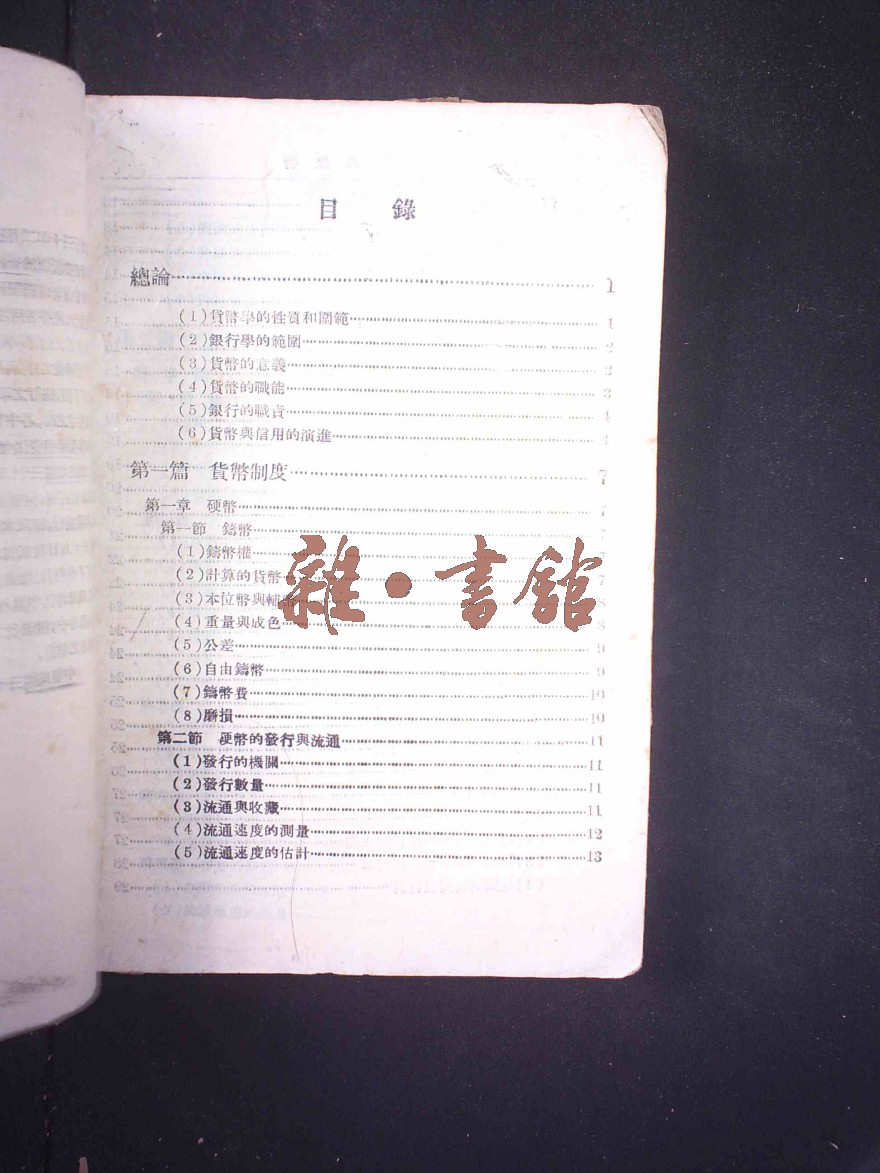 目 錄
總論……1
(1)貨幣學的性質和圍範……1
(2)銀行學的範圍……2
(3)貨幣的意義……2
(4)貨幣的職能……3
(5)銀行的職責……4
(6)貨幣與信用的演進……4
第一篇 貨幣制度……7
第一章 硬幣……7
第一節 鑄幣……7
(1)鑄幣權……7
(2)計算的貨幣……7
(3)本位幣與輔幣……8
(4)重量與成色……8
(5)公差……9
(6)自由鑄幣……9
(7)鑄幣費……10
(8)磨損……10
第二節 硬幣的發行與流通……11
(1)發行的機關……11
(2)發行數量……11
(3)流通與收藏……11
(4)流通速度的測量……12
(5)流通速度的估計……13
雜·書館